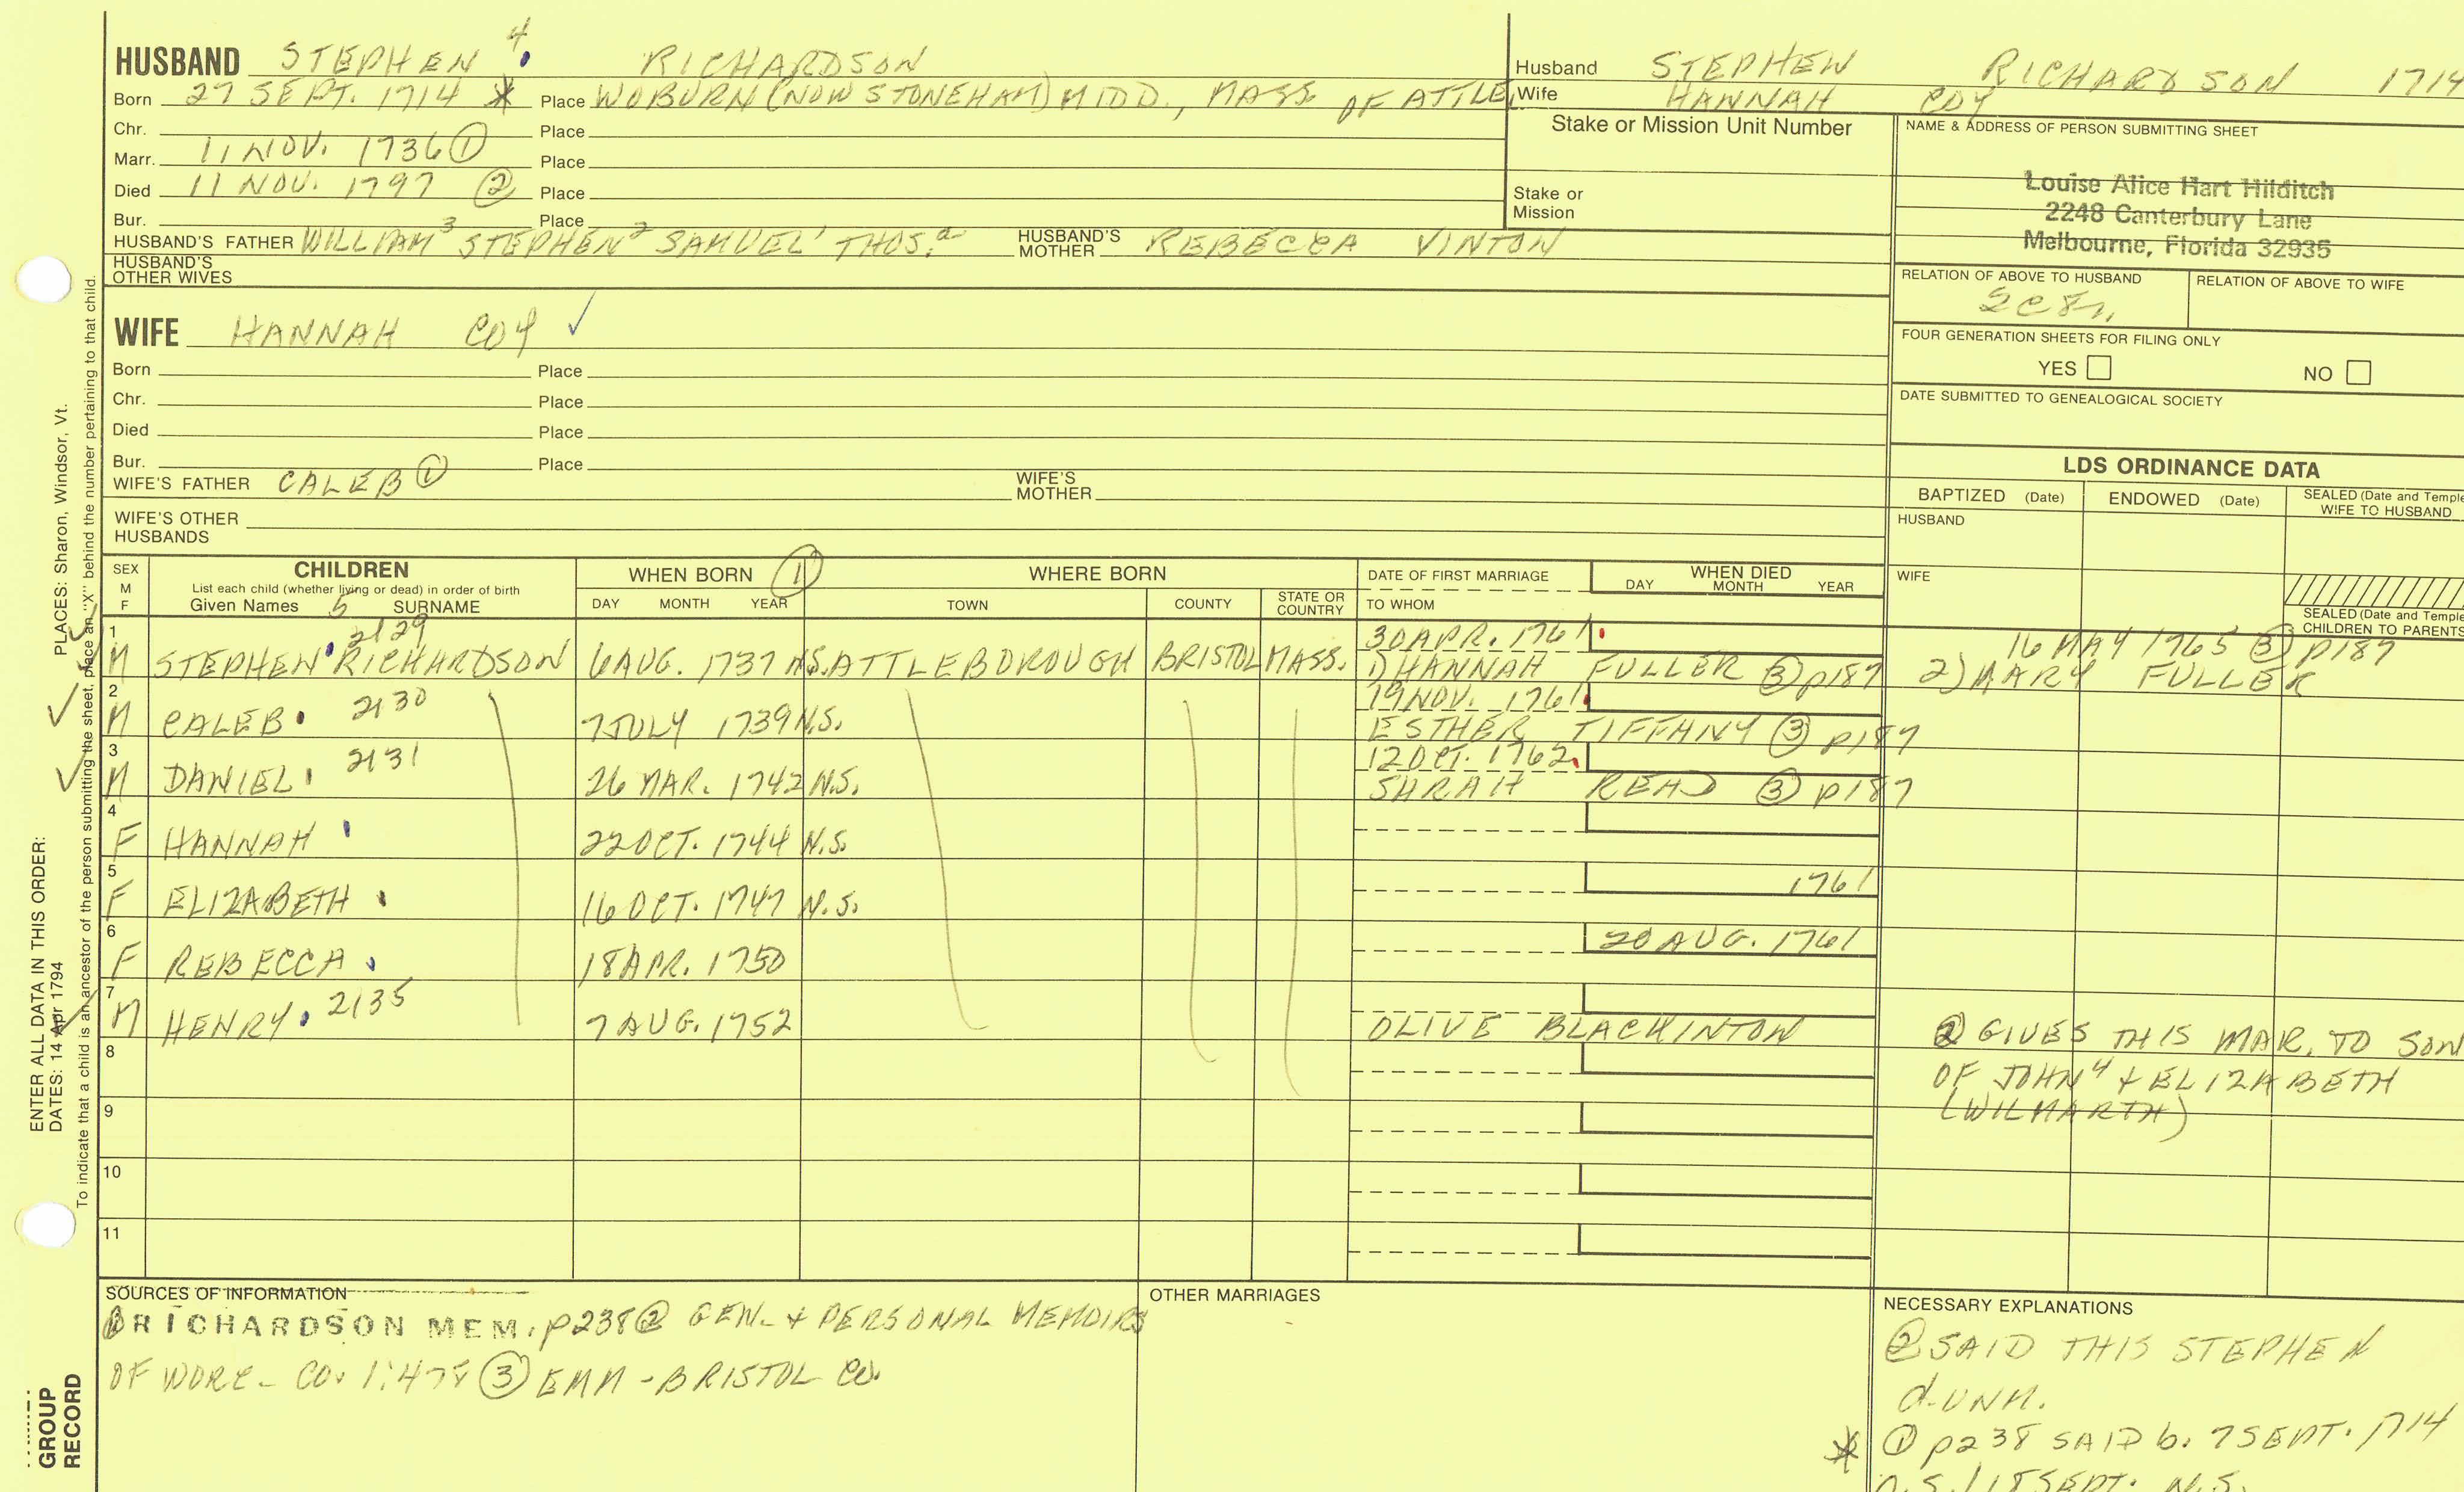 HUSBAND STEPHEN 4 RICHARDSON
Born 27 SEPT. 1714 * Place WOBURN (NOW STONEHAM) MIDD., MASS OF ATTLE.
Chr. Place
Marr. 11 NOV. 1736 ① Place
Died 11 NOV. 1797 ② Place
Bur. Place
HUSBAND'S FATHER WILLIAM 3 STEPHEN 2 SAMUEL 1 THOS. a HUSBAND'S MOTHER REBECCA VINTON
HUSBAND'S OTHER WIVES
Husband STEPHEN RICHARDSON 1714
Wife HANNAH COY
Stake or Mission Unit Number
Stake or
Mission
NAME & ADDRESS OF PERSON SUBMITTING SHEET
Louise Alice Hart Hilditch
2248 Canterbury Lane
Melbourne, Florida 32935
RELATION OF ABOVE TO HUSBAND RELATION OF ABOVE TO WIFE
2C8r,
FOUR GENERATION SHEETS FOR FILING ONLY
YES NO
DATE SUBMITTED TO GENEALOGICAL SOCIETY
WIFE HANNAH COY ✓
Born Place
Chr. Place
Died Place
Bur. Place
WIFE'S FATHER CALEB ① WIFE'S MOTHER
WIFE'S OTHER
HUSBANDS
LDS ORDINANCE DATA
BAPTIZED (Date) ENDOWED (Date) SEALED (Date and Temple
WIFE TO HUSBAND
HUSBAND
WIFE
SEALED (Date and Temple
CHILDREN TO PARENTS
SEX M F
CHILDREN
List each child (whether living or dead) in order of birth
Given Names 5 SURNAME
WHEN BORN ①
DAY MONTH YEAR
WHERE BORN
TOWN COUNTY STATE OR COUNTRY
DATE OF FIRST MARRIAGE
TO WHOM
WHEN DIED
DAY MONTH YEAR
1 2129 30 APR. 1761 16 MAY 1765 ③ p187
M STEPHEN RICHARDSON 6 AUG. 1737 N.S. ATTLEBOROUGH BRISTOL MASS. 1) HANNAH FULLER ③ p187 2) MARY FULLER
2 19 NOV. 1761
M CALEB 2130 7 JULY 1739 N.S. ESTHER TIFFANY ③ p187
3 12 OCT. 1762
M DANIEL 2131 26 MAR. 1742 N.S. SARAH READ ③ p187
4
F HANNAH 22 OCT. 1744 N.S.
5 1761
F ELIZABETH 16 OCT. 1747 N.S.
6 20 AUG. 1761
F REBECCA 18 APR. 1750
7
M HENRY 2135 7 AUG. 1752 OLIVE BLACKINTON ② GIVES THIS MAR. TO SON
OF JOHN 4 + ELIZABETH
(WILMARTH)
8
9
10
11
SOURCES OF INFORMATION
① RICHARDSON MEM. p238 ② GEN. + PERSONAL MEMOIRS
OF WORC. CO. 1:478 ③ EMM - BRISTOL CO.
OTHER MARRIAGES
NECESSARY EXPLANATIONS
② SAID THIS STEPHEN
d. UNM.
* ① p238 SAID b. 7 SEPT. 1714
O.S./18 SEPT. N.S.
PLACES: Sharon, Windsor, Vt.
ENTER ALL DATA IN THIS ORDER:
DATES: 14 Apr 1794
To indicate that a child is an ancestor of the person submitting the sheet, place an "X" behind the number pertaining to that child.
GROUP
RECORD